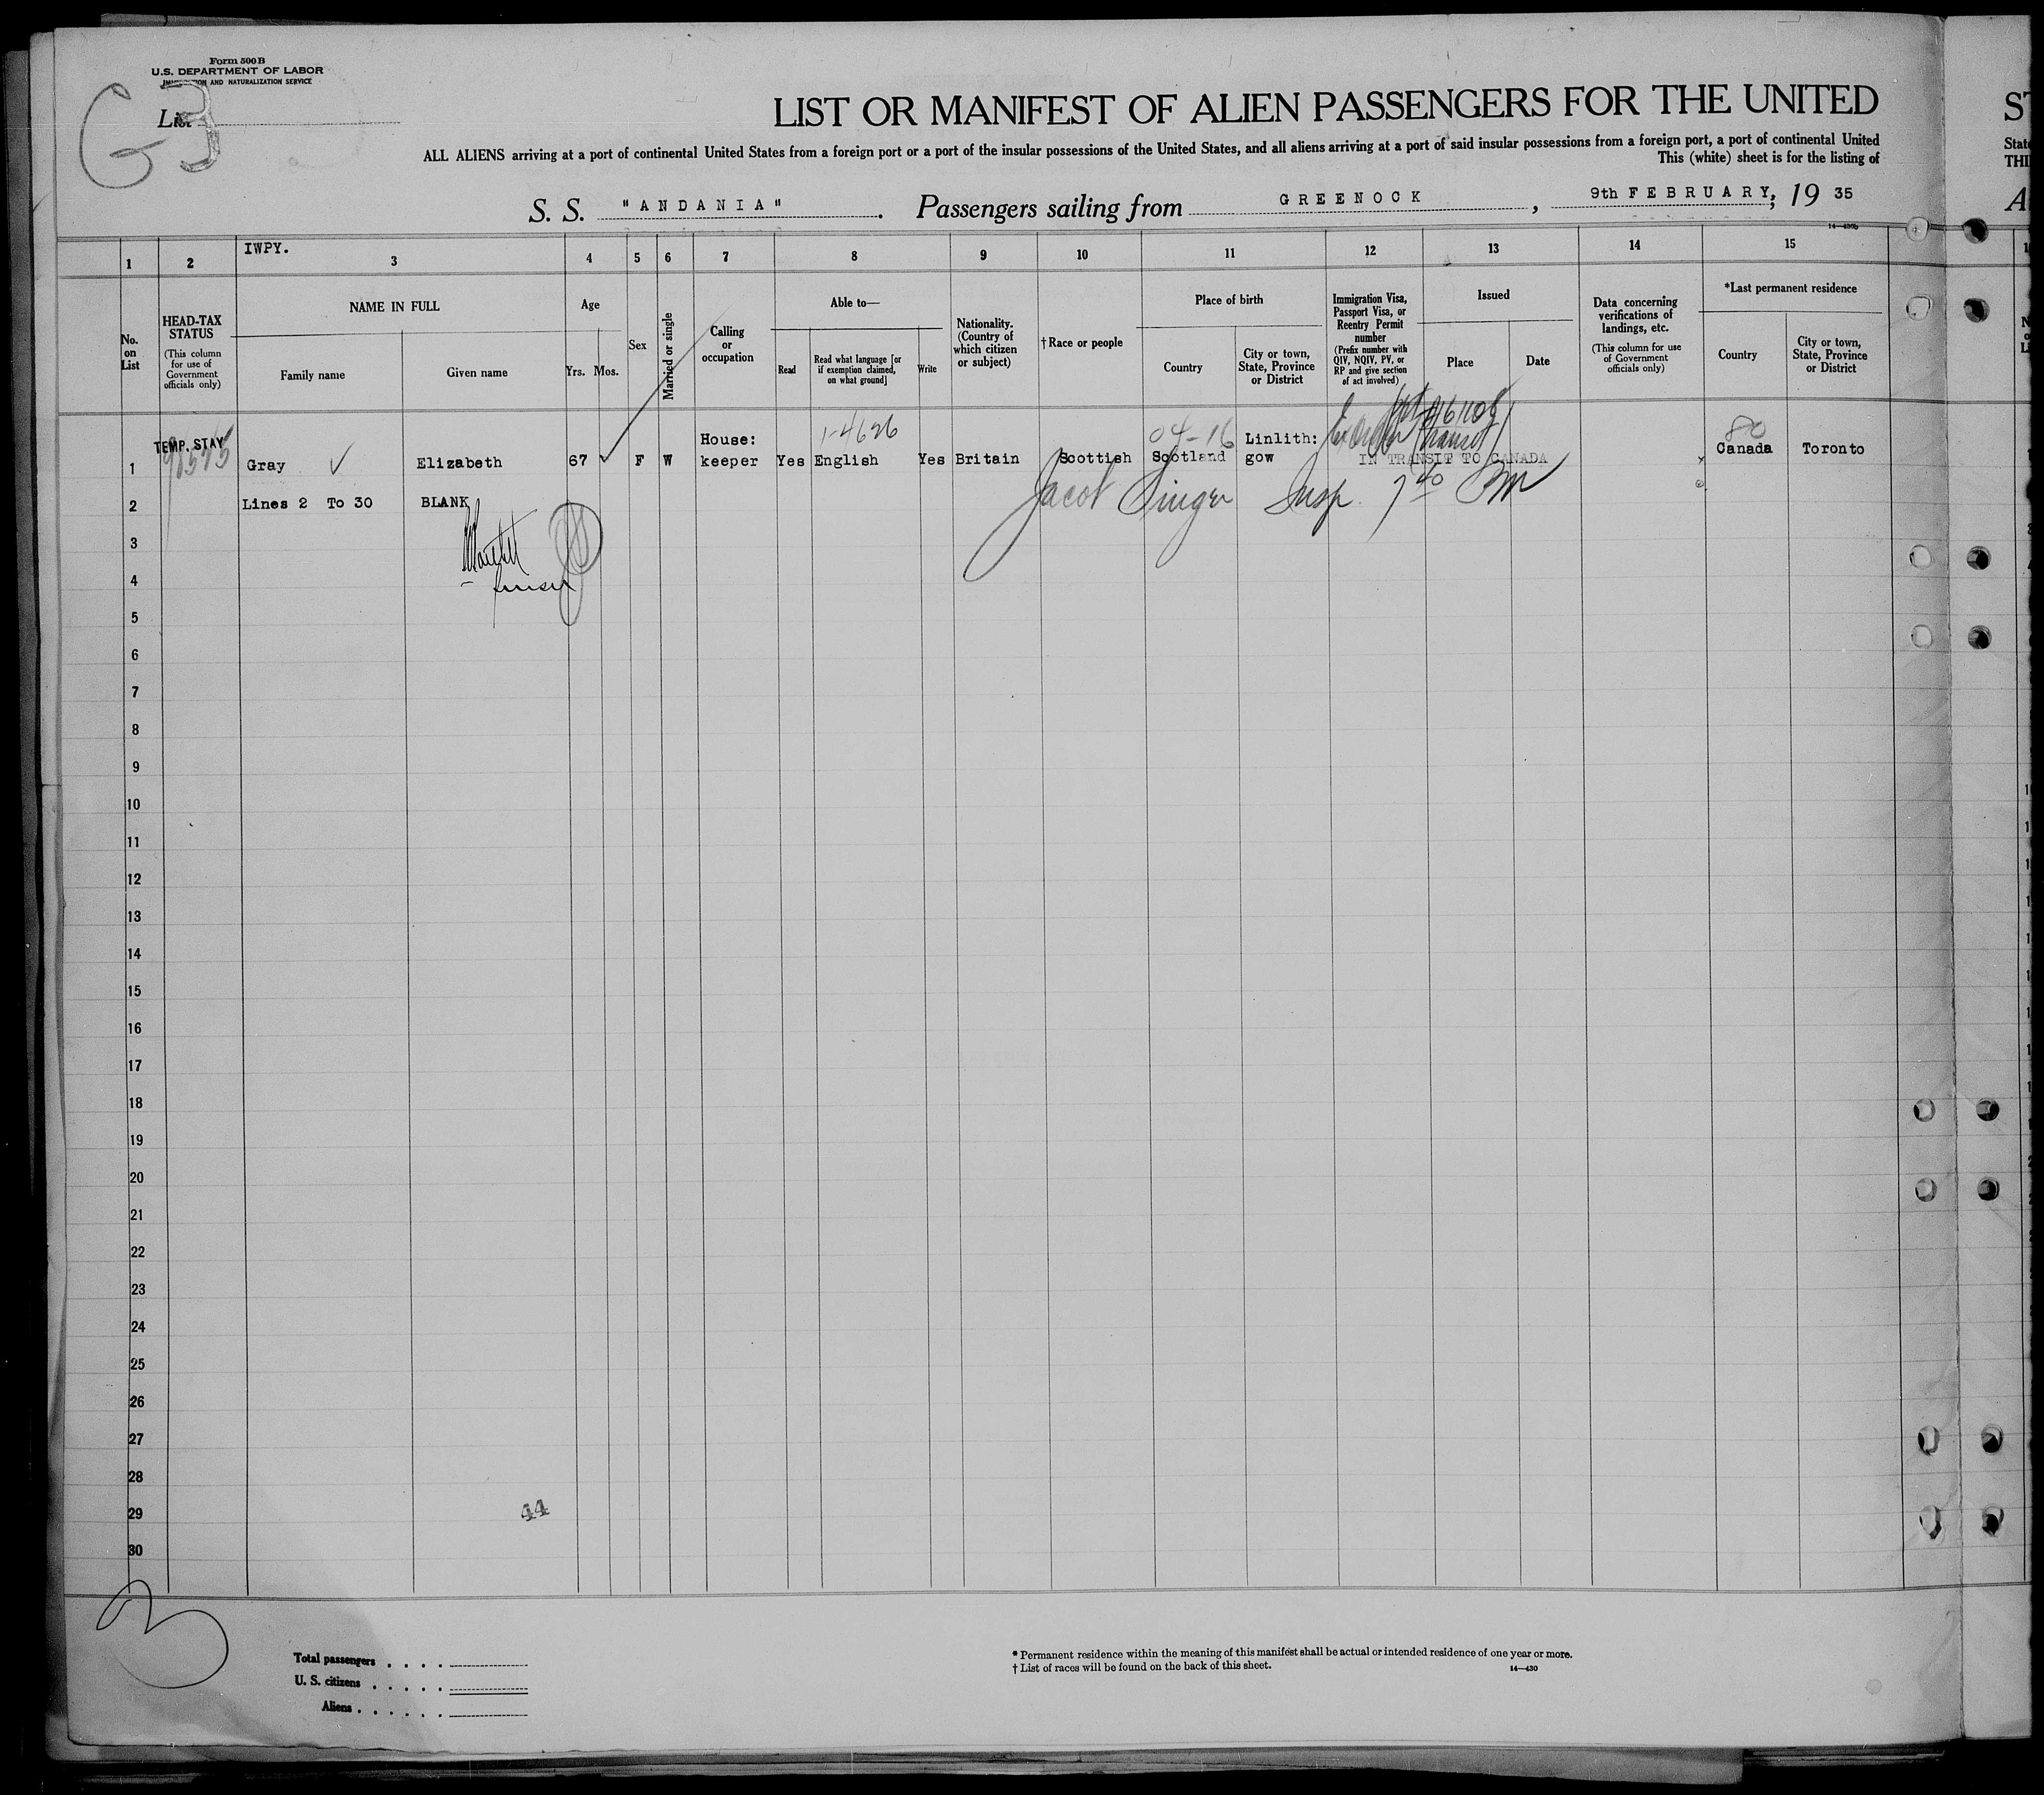 Form 500 B
U.S. DEPARTMENT OF LABOR
IMMIGRATION AND NATURALIZATION SERVICE
G3
List
LIST OR MANIFEST OF ALIEN PASSENGERS FOR THE UNITED
ALL ALIENS arriving at a port of continental United States from a foreign port or a port of the insular possessions of the United States, and all aliens arriving at a port of said insular possessions from a foreign port, a port of continental United
This (white) sheet is for the listing of
S. S. "ANDANIA". Passengers sailing from GREENOCK, 9th FEBRUARY, 19 35
ST
State
THI
A
14—430b
IWPY.
1 2 3 4 5 6 7 8 9 10 11 12 13 14 15
No. on List
HEAD-TAX STATUS
(This column for use of Government officials only)
NAME IN FULL
Family name Given name
Age
Yrs. Mos.
Sex
Married or single
Calling or occupation
Able to—
Read
Read what language [or if exemption claimed, on what ground]
Write
Nationality. (Country of which citizen or subject)
†Race or people
Place of birth
Country
City or town, State, Province or District
Immigration Visa, Passport Visa, or Reentry Permit number
(Prefix number with QIV, NQIV, PV, or RP and give section of act involved)
Issued
Place Date
Data concerning verifications of landings, etc.
(This column for use of Government officials only)
*Last permanent residence
Country
City or town, State, Province or District
1-4626 04-16 80
TEMP. STAY House: Linlith:
1 Gray Elizabeth 67 F W keeper Yes English Yes Britain Scottish Scotland gow IN TRANSIT TO CANADA Canada Toronto
2 Lines 2 To 30 BLANK Jacob Singer Insp. 7 40 PM
3
4
5
6
7
8
9
10
11
12
13
14
15
16
17
18
19
20
21
22
23
24
25
26
27
28
29 44
30
3
Total passengers
U. S. citizens
Aliens
* Permanent residence within the meaning of this manifest shall be actual or intended residence of one year or more.
† List of races will be found on the back of this sheet.
14—430